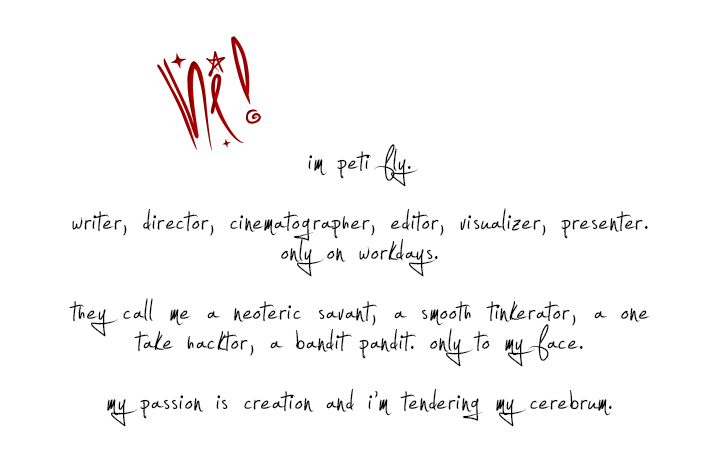 Hi!
im peti fly.
writer, director, cinematographer, editor, visualizer, presenter.
only on workdays.
they call me a neoteric savant, a smooth tinkerator, a one
take hacktor, a bandit pandit. only to my face.
my passion is creation and i'm tendering my cerebrum.